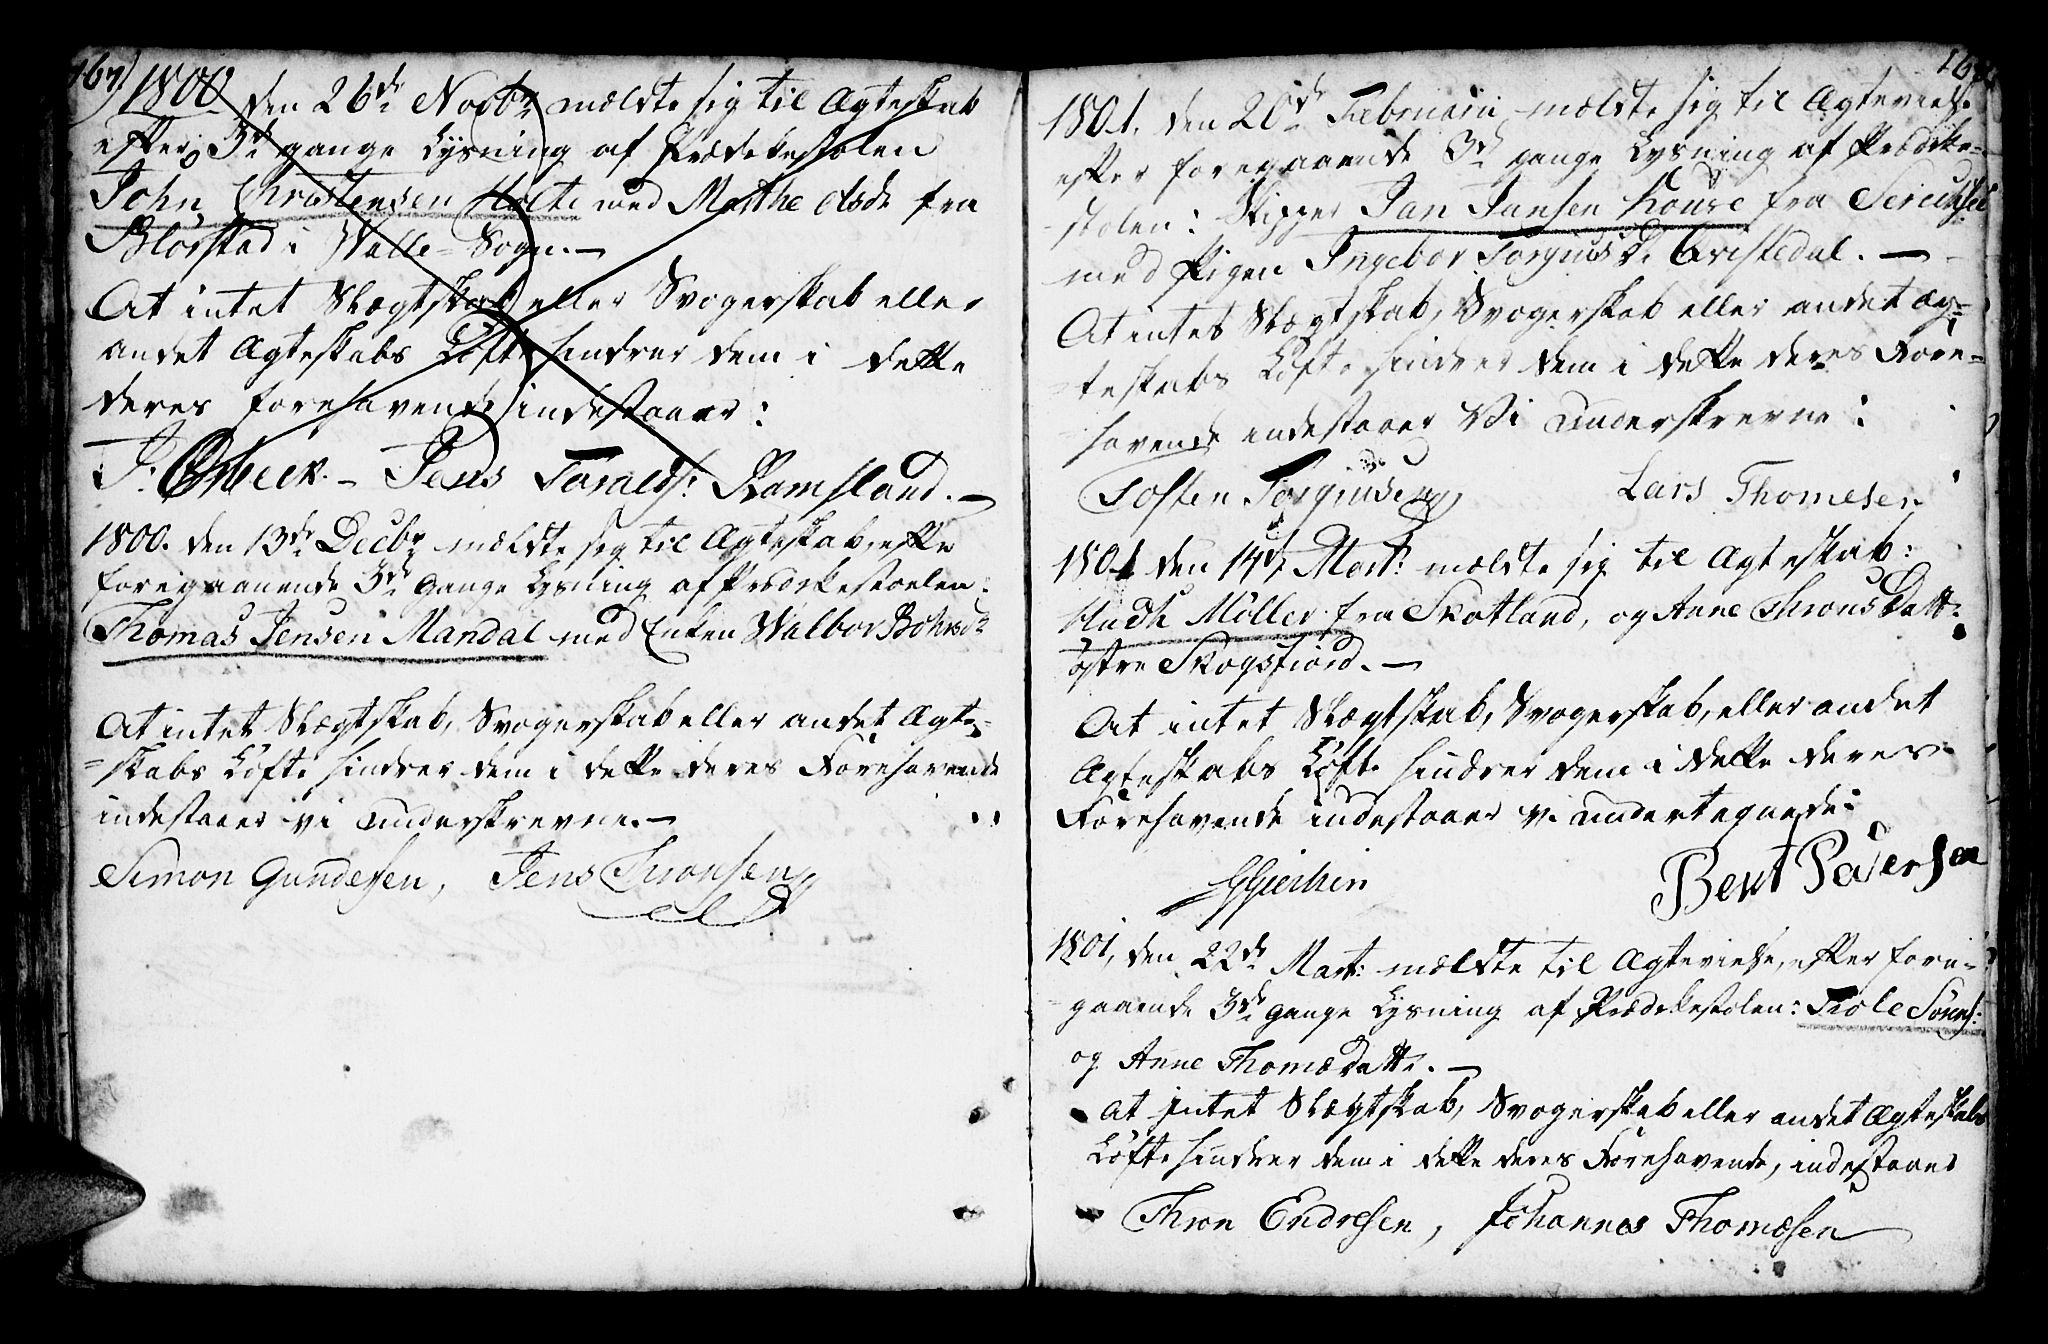 167)
1800 den 26de Novbr mældte sig til Ægteskab
efter 3de gange Lysning af Prædikestolen
John Christensen Holte med Marthe Olsdr fra
Blørstad i Walle-Sogn. —
At intet Slægtskab eller Svogerskab eller
andet Ægteskabs Løfte hindrer dem i dette
deres forehavende indestaaer:
J. Orbeck. – Jens Taralds: Ramsland. —
1800. den 13de Decbr mældte sig til Ægteskab, efter
foregaaende 3de Gange Lysning af Prædikestoelen:
Thomas Jensen Mandal med Enken Walbor Bohrsdr
At intet Slægtskab, Svogerskab eller andet Ægte-
-skabs Løfte hindrer dem i dette deres Forehavende
indestaaer vi underskrevne. —
Simon Gundesen, Jens Thronsen
168
1801. den 20de Februarii mældte sig til Ægtevielse
efter foregaaende 3de gange Lysning af Prædike-
-stolen: Skipper Jan Jansen Kouse fra
med Pigen Ingebor Torgiusdr. Qvistedal. —
At intet Slægtskab, Svogerskab eller andet Æg-
-teskabs Løfte hindrer dem i dette deres Fore-
-havende indestaaer Vi underskrevne:
Tosten Torgiusen Lars Thomesen
1801 den 14de Mart: mældte sig til Ægteskab:
Møller fra Skotland, og Anne Throns Datt:
østre Skogsfiord. —
At intet Slægtskab, Svogerskab, eller andet
Ægteskabs Løfte hindrer dem i dette deres
Forehavende indestaaer vi undertegnede:
Bent Pedersen
1801, den 22de Mart: mældte til Ægtevielse, efter fore-
-gaaende 3de gange Lysning af Prædikestolen: Tiøle Sørens:
og Anne Thomædatter. —
At intet Slægtskab, Svogerskab eller andet Ægteskabs
Løfte hindrer dem i dette deres Forehavende, indestaaer
Thron Endresen, Johannes Thomæsen